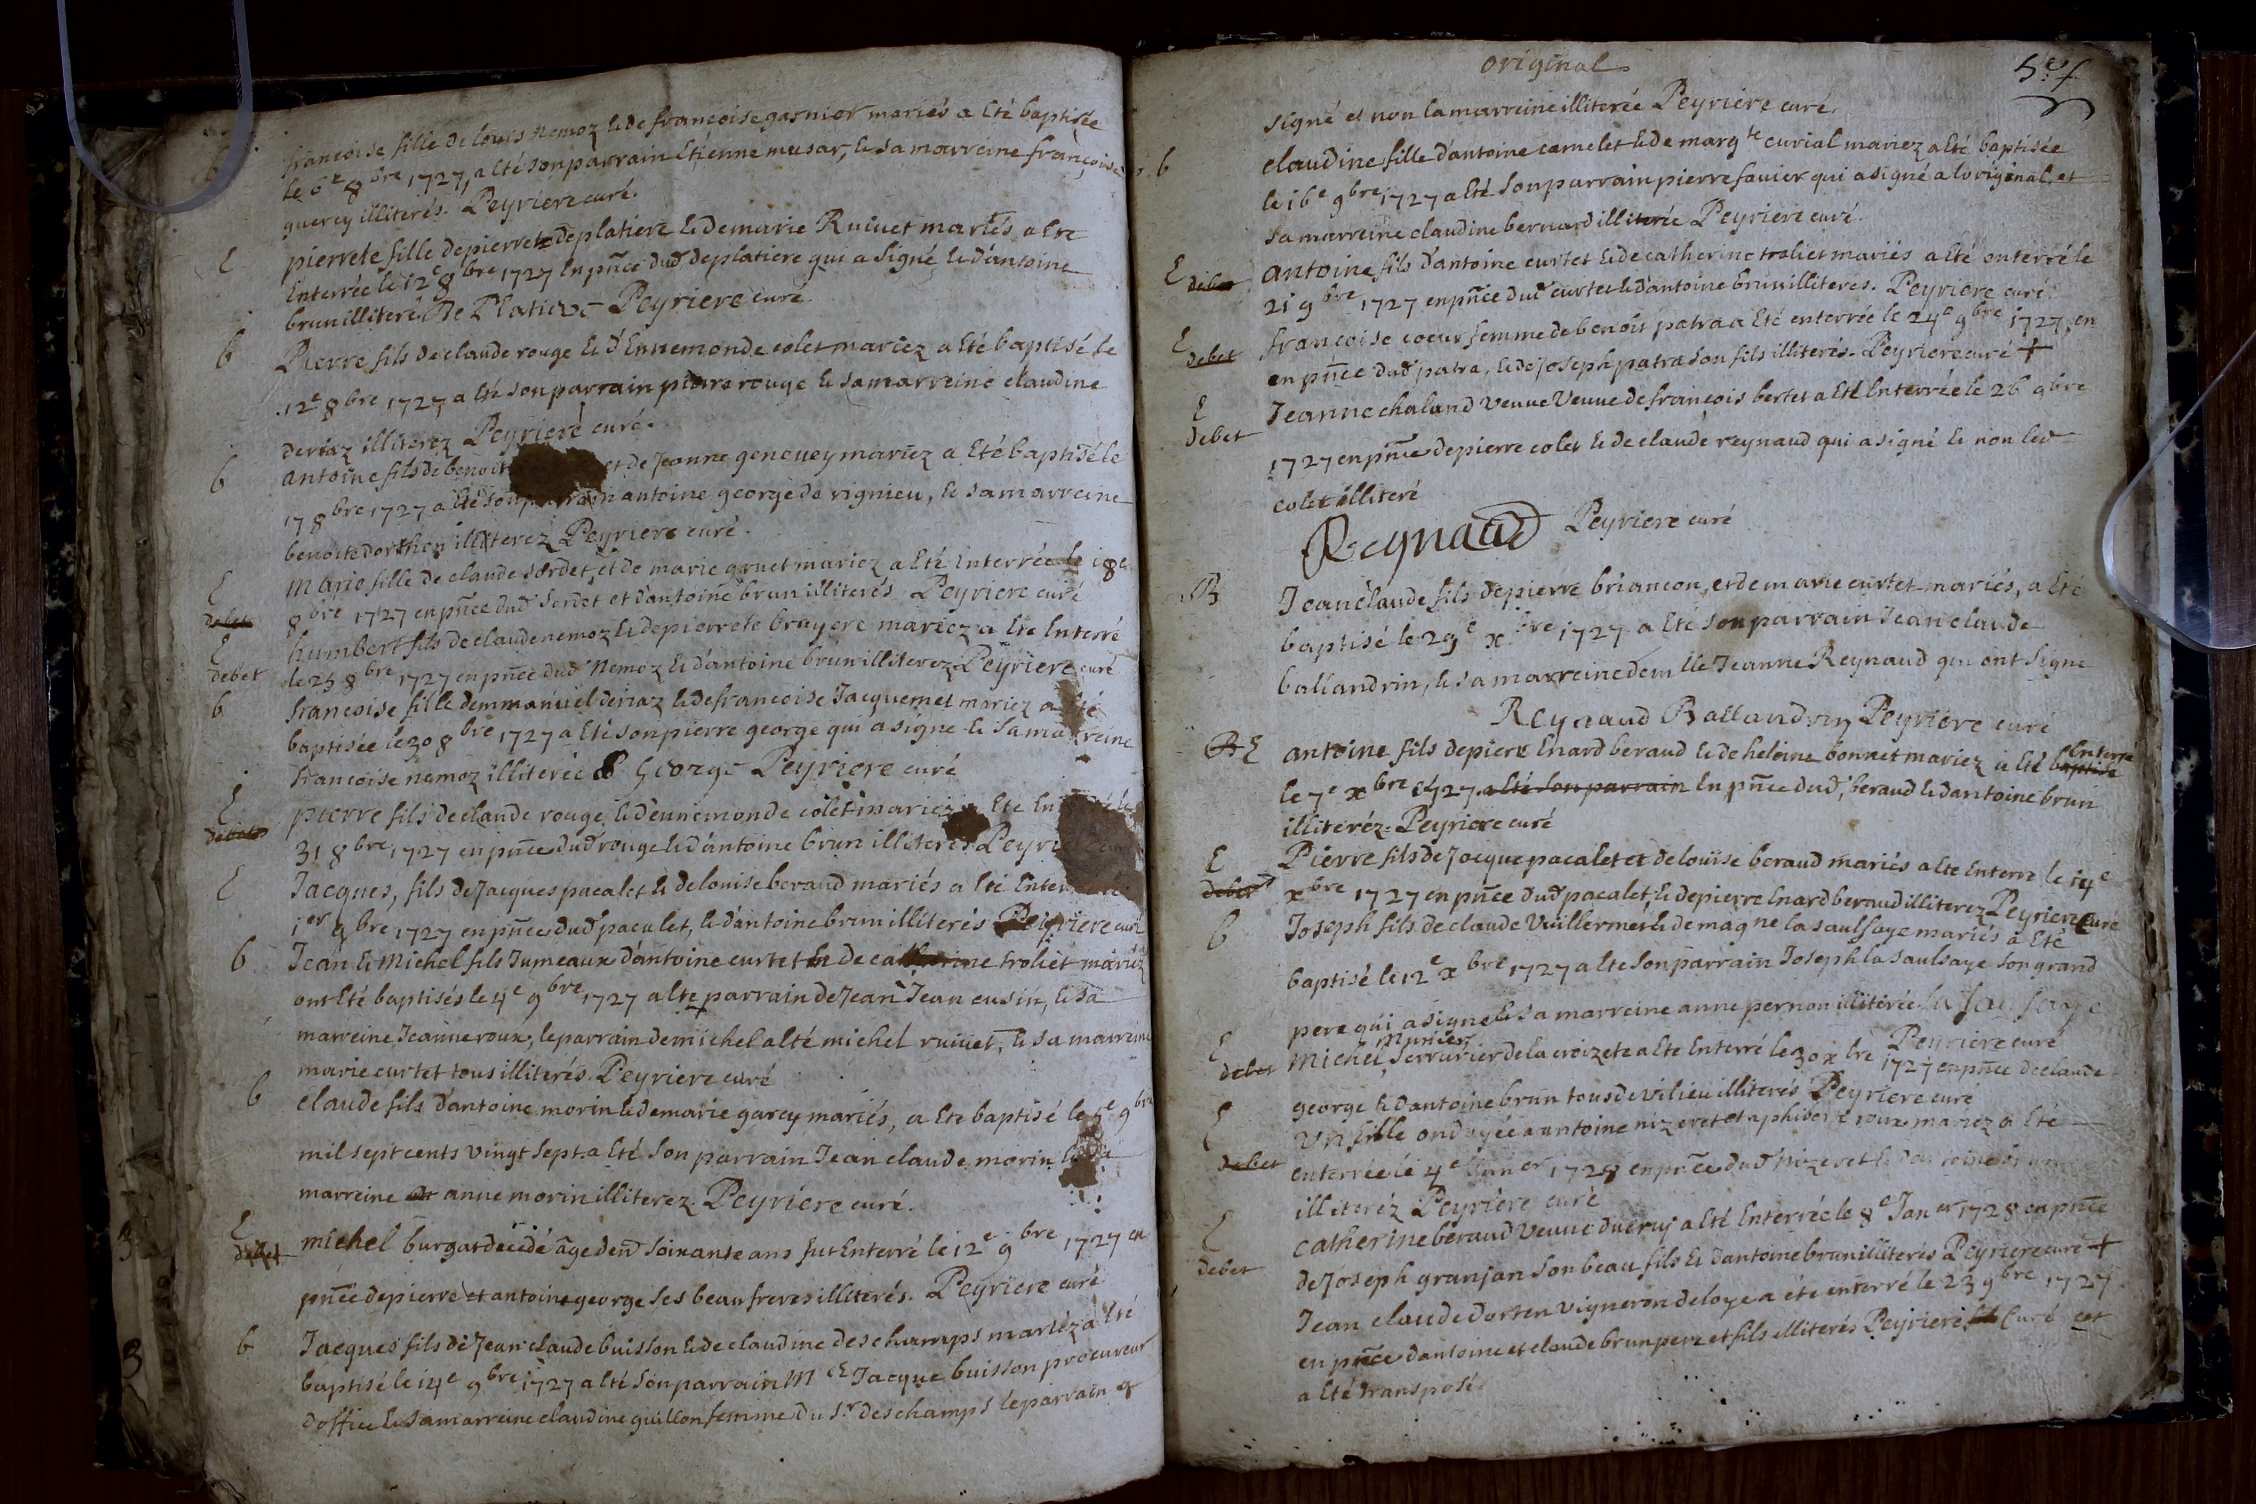 francoise fille de louis nemoz & de françoise gasnier mariés a Eté baptisée
le 6e 8bre 1727, a Eté son parrain Etienne musar, & sa marreine françoise
quercy illiterés. Peyriere curé.
E pierrete fille de pierre deplatiere & de marie Ruivet mariés a Ete
Enterrée le 12e 8bre 1727 En pñce dud deplatiere qui a signé & d'antoine
brun illiteré De Platiere Peyriere curé
b Pierre fils de claude rouge & d'Ennemonde colet mariez a Eté baptisé le
12e 8bre 1727 a Eté son parrain pierre rouge & sa marreine claudine
deriaz illiterez Peyriere curé.
b antoine fils de benoit et de Jeanne genevey mariez a Eté baptisé le
17 8bre 1727 a Eté son parrain antoine george de vignieu, & sa marreine
benoite dorthen illiterez Peyriere curé.
E Marie fille de claude serdet et de marie genet mariez a Eté Enterrée le 18e
debet 8bre 1727 en pñce dud serdet et d'antoine brun illiterés Peyriere curé
E humbert fils de claude nemoz & de pierrete bruyere mariez a Ete Enterré
debet le 25 8bre 1727 en pñce dud Nemoz & d'antoine brun illiterez Peyriere curé
b francoise fille demmanuel deriaz & de francoise Jacquemet mariez a Eté
baptisée le 30 8bre 1727 a Eté son pierre george qui a signé & sa marreine
francoise nemoz illiterée George Peyriere curé
E pierre fils de claude rouge, & d'ennemonde colet mariez a Ete En le
debet 31 8bre 1727 en pñce dud rouge & d'antoine brun illiterés Peyri
E Jacques, fils de Jacques pacalet & de louise beraud mariés a Eté Enter
1er 9bre 1727 en pñce dud pacalet, & d'antoine brun illiterés Peyriere curé
b Jean & Michel fils Jumeaux d'antoine curtet & de catherine troliet mariéz
ont Eté baptisés le 4e 9bre 1727 a Ete parrain de Jean Jean cusin, & sa
marreine Jeanne roux, le parrain de michel a Eté michel ruivet, & sa marreine
marie curtet tous illiterés. Peyriere curé
b claude fils d'antoine morin & de marie garcy mariés, a Ete baptisé le 9bre
mil sept cents vingt sept a Eté son parrain Jean claude morin & sa
marreine anne morin illiterez. Peyriere curé.
E michel burgat decidé âge den soixante ans fut Enterré le 12e 9bre 1727 en
debet pñce de pierre et antoine george ses beau freres illiterés. Peyriere curé
b Jacques fils de Jean claude buisson & de claudine deschamps mariéz a Eté
baptisé le 14e 9bre 1727 a Eté son parrain Mre Jacque buisson procureur
d'office & sa marreine claudine guillon femme du Sr deschamps le parrain a
original
5e f
signé et non la marreine illiterée Peyriere curé.
b claudine fille d'antoine camelet & de margte curial mariez a Eté baptisée
le 16e 9bre 1727 a Eté son parrain pierre favier qui a signé a l'original, et
sa marreine claudine bernard illiterée Peyriere curé.
E antoine fils d'antoine curtet & de catherine troliet mariés a Eté enterré le
debet 21 9bre 1727 en pñce dud curtet & d'antoine brun illiteres. Peyriere curé.
E francoise coeur femme de benoit patra a Eté enterrée le 24e 9bre 1727. en
debet en pñce dud patra, & de Joseph patra son fils illiterés. Peyriere curé +
E Jeanne chaland veuve Veuve de francois bertet a Eté Enterrée le 26 9bre
debet 1727 en pñce de pierre colet & de claude reynaud qui a signé & non led
colet illiteré
Reynaud Peyriere curé
B Jean claude fils de pierre briancon, et de marie curtet mariés, a Eté
baptisé le 29e xbre 1727 a Eté son parrain Jean claude
baliandrin, & sa marreine demlle Jeanne Reynaud qui ont signe
Reynaud Baliandrin Peyriere curé
B E antoine fils de piere Enard beraud & de heleine bonnet mariez a Eté baptisé Enterré
le 7e xbre 1727 a Eté son parrain En pñce dud, beraud & d'antoine brun
illiteréz. Peyriere curé
E Pierre fils de Jacque pacalet et de louise beraud mariés a Ete Enterre le 14e
debet xbre 1727 en pñce dud pacalet, & de pierre Enard beraud illiterez Peyriere Curé
b Joseph fils de claude Vuillermet & de magne la saulsaye mariés a Eté
baptisé le 12e xbre 1727 a Ete son parrain Joseph la saulsaye son grand
pere qui a signe & sa marreine anne pernon illiterée la sau saye
Peyriere curé
E Michel Serrurier de la croizete a Ete Enterré le 30 xbre 1727 en pñce de claude
debet george & d'antoine brun tous de vilieu illiterés Peyriere curé
E Un fille ondoyée a antoine nizeret et a phi roux mariez a Eté
debet enterrée le 4e Janer 1728 en pñce dud Nizeret & d'antoine brun
illiteréz Peyriere curé
E catherine beraud Veuve a Eté Enterrée le 8e Janer 1728 en pñce
debet de Joseph granjan son beau fils & d'antoine brun illiterés Peyriere curé +
Jean claude dorten vigneron de loye a éte enterré le 23 9bre 1727
en pñce d'antoine et claude brun pere et fils illiterés Peyriere Curé cet
a Eté transposé